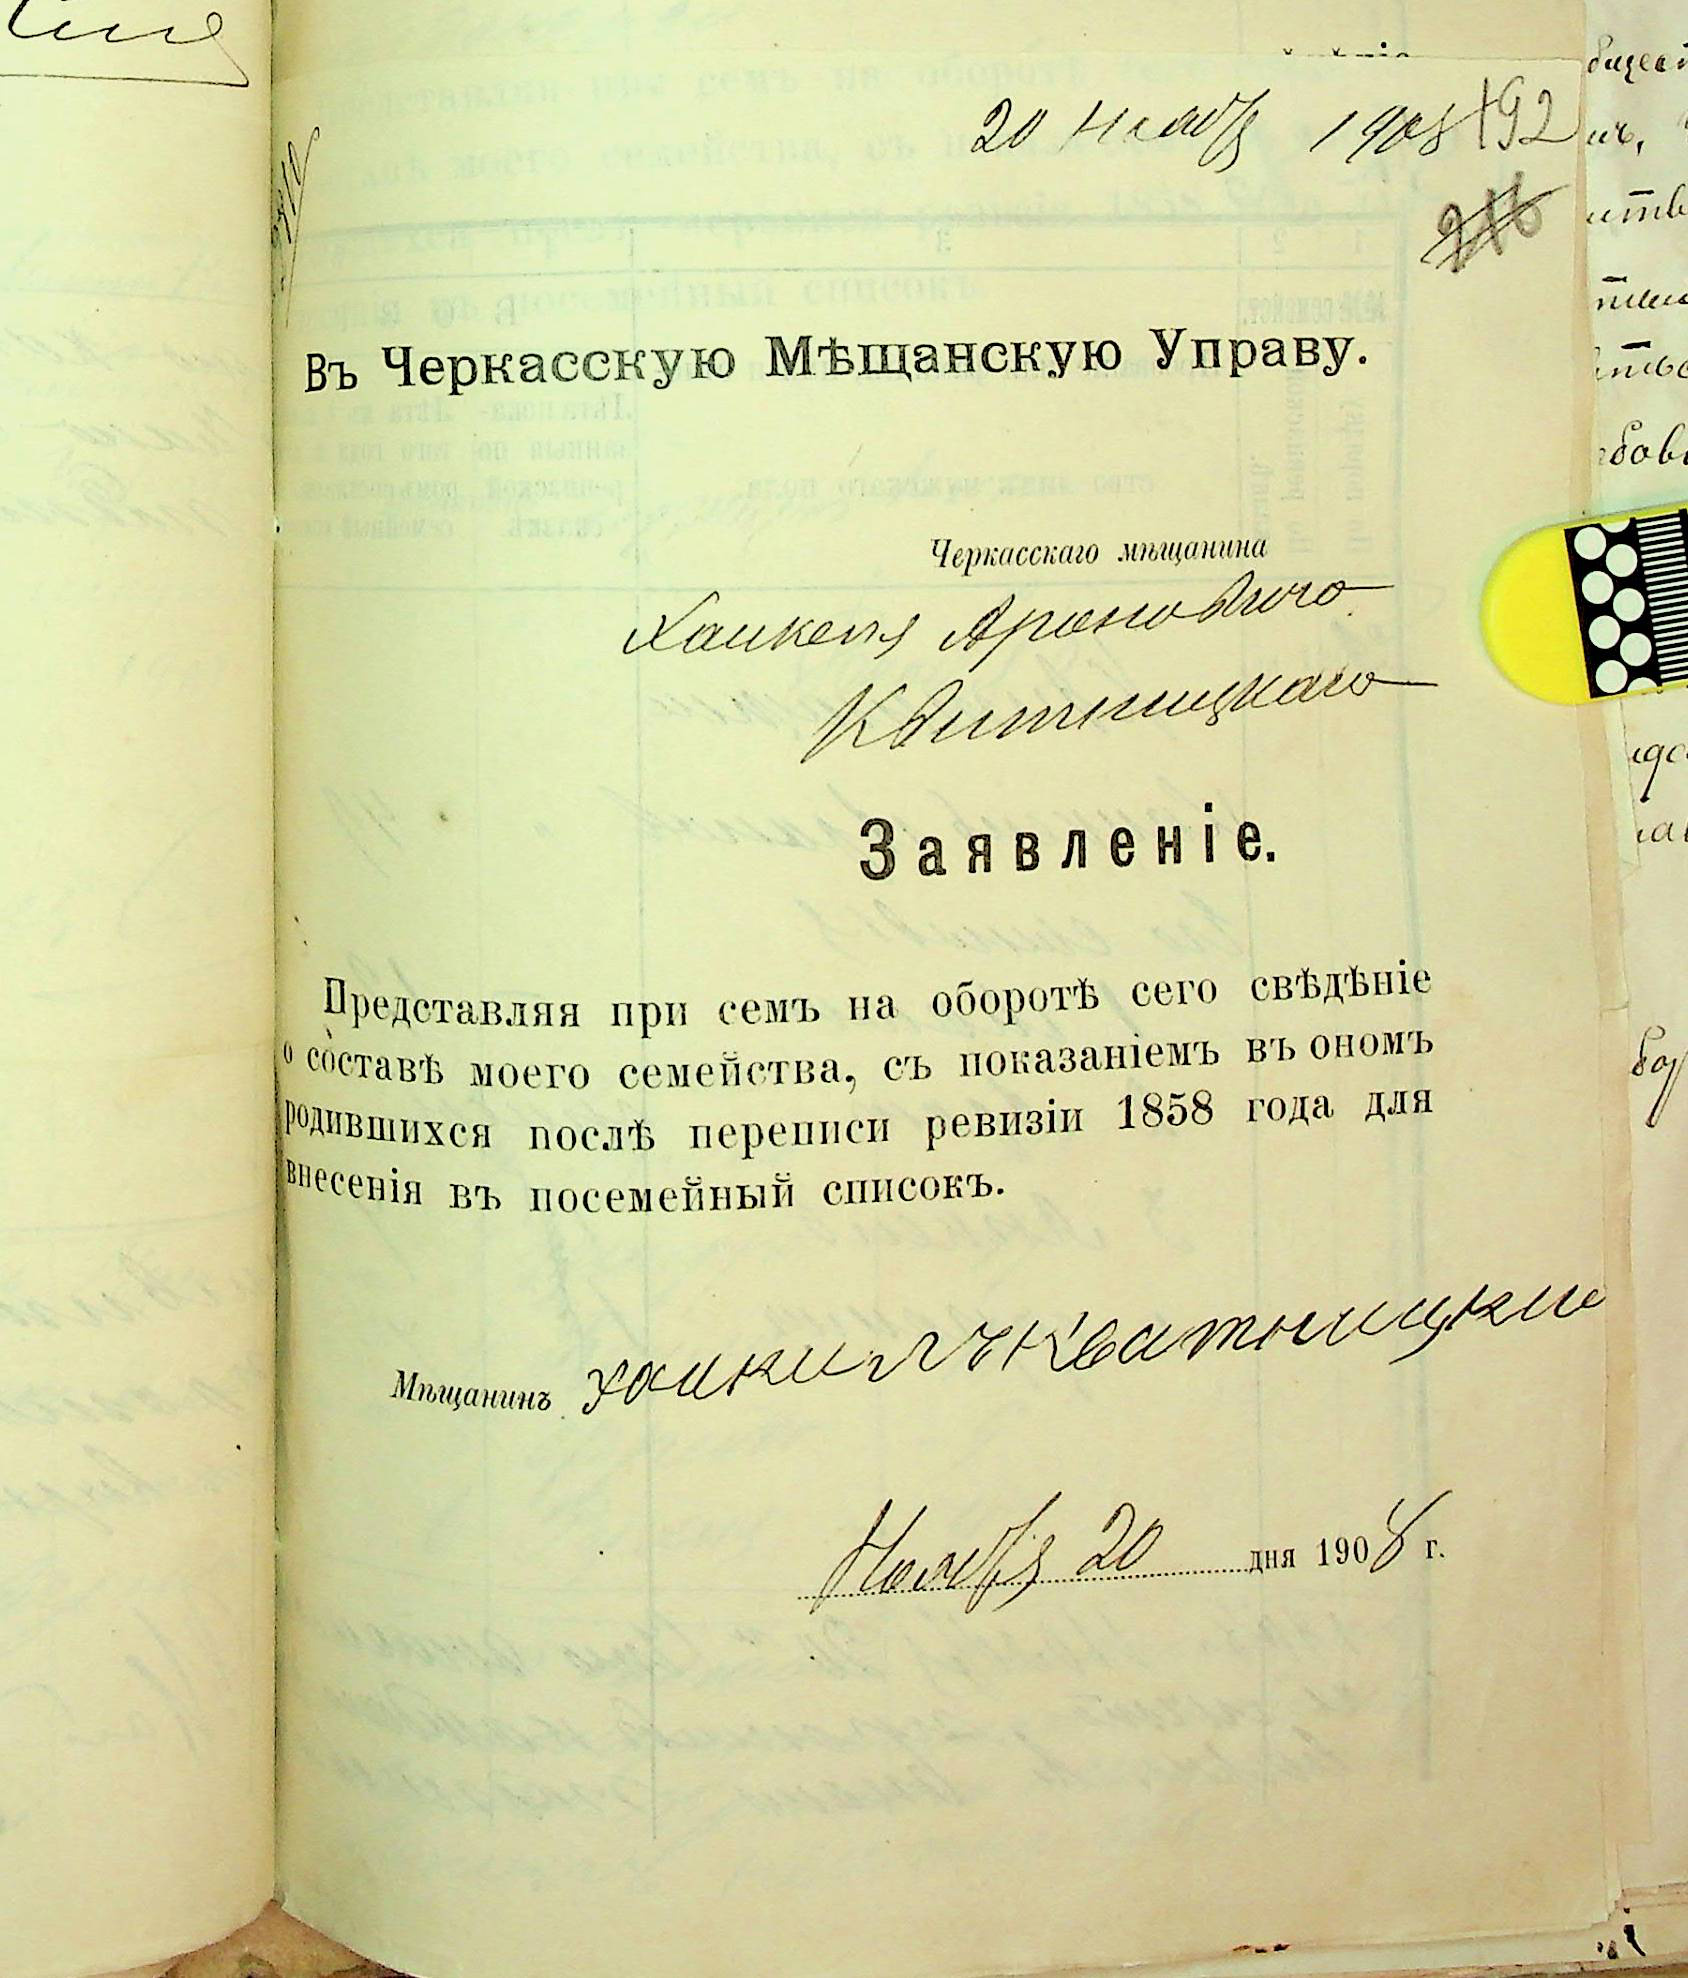 20 Ноября 1908
192
216
Въ Черкасскую Мѣщанскую Управу.
Черкасскаго мѣщанина
Хаикеля Ароновича
Квитницкаго
Заявленіе.
Представляя при семъ на оборотѣ сего свѣдѣніе
о составѣ моего семейства, съ показаніемъ въ ономъ
родившихся послѣ переписи ревизіи 1858 года для
внесенія въ посемейный списокъ.
Мѣщанинъ Хаикилъ Кватницки
Ноября 20 дня 1908 г.